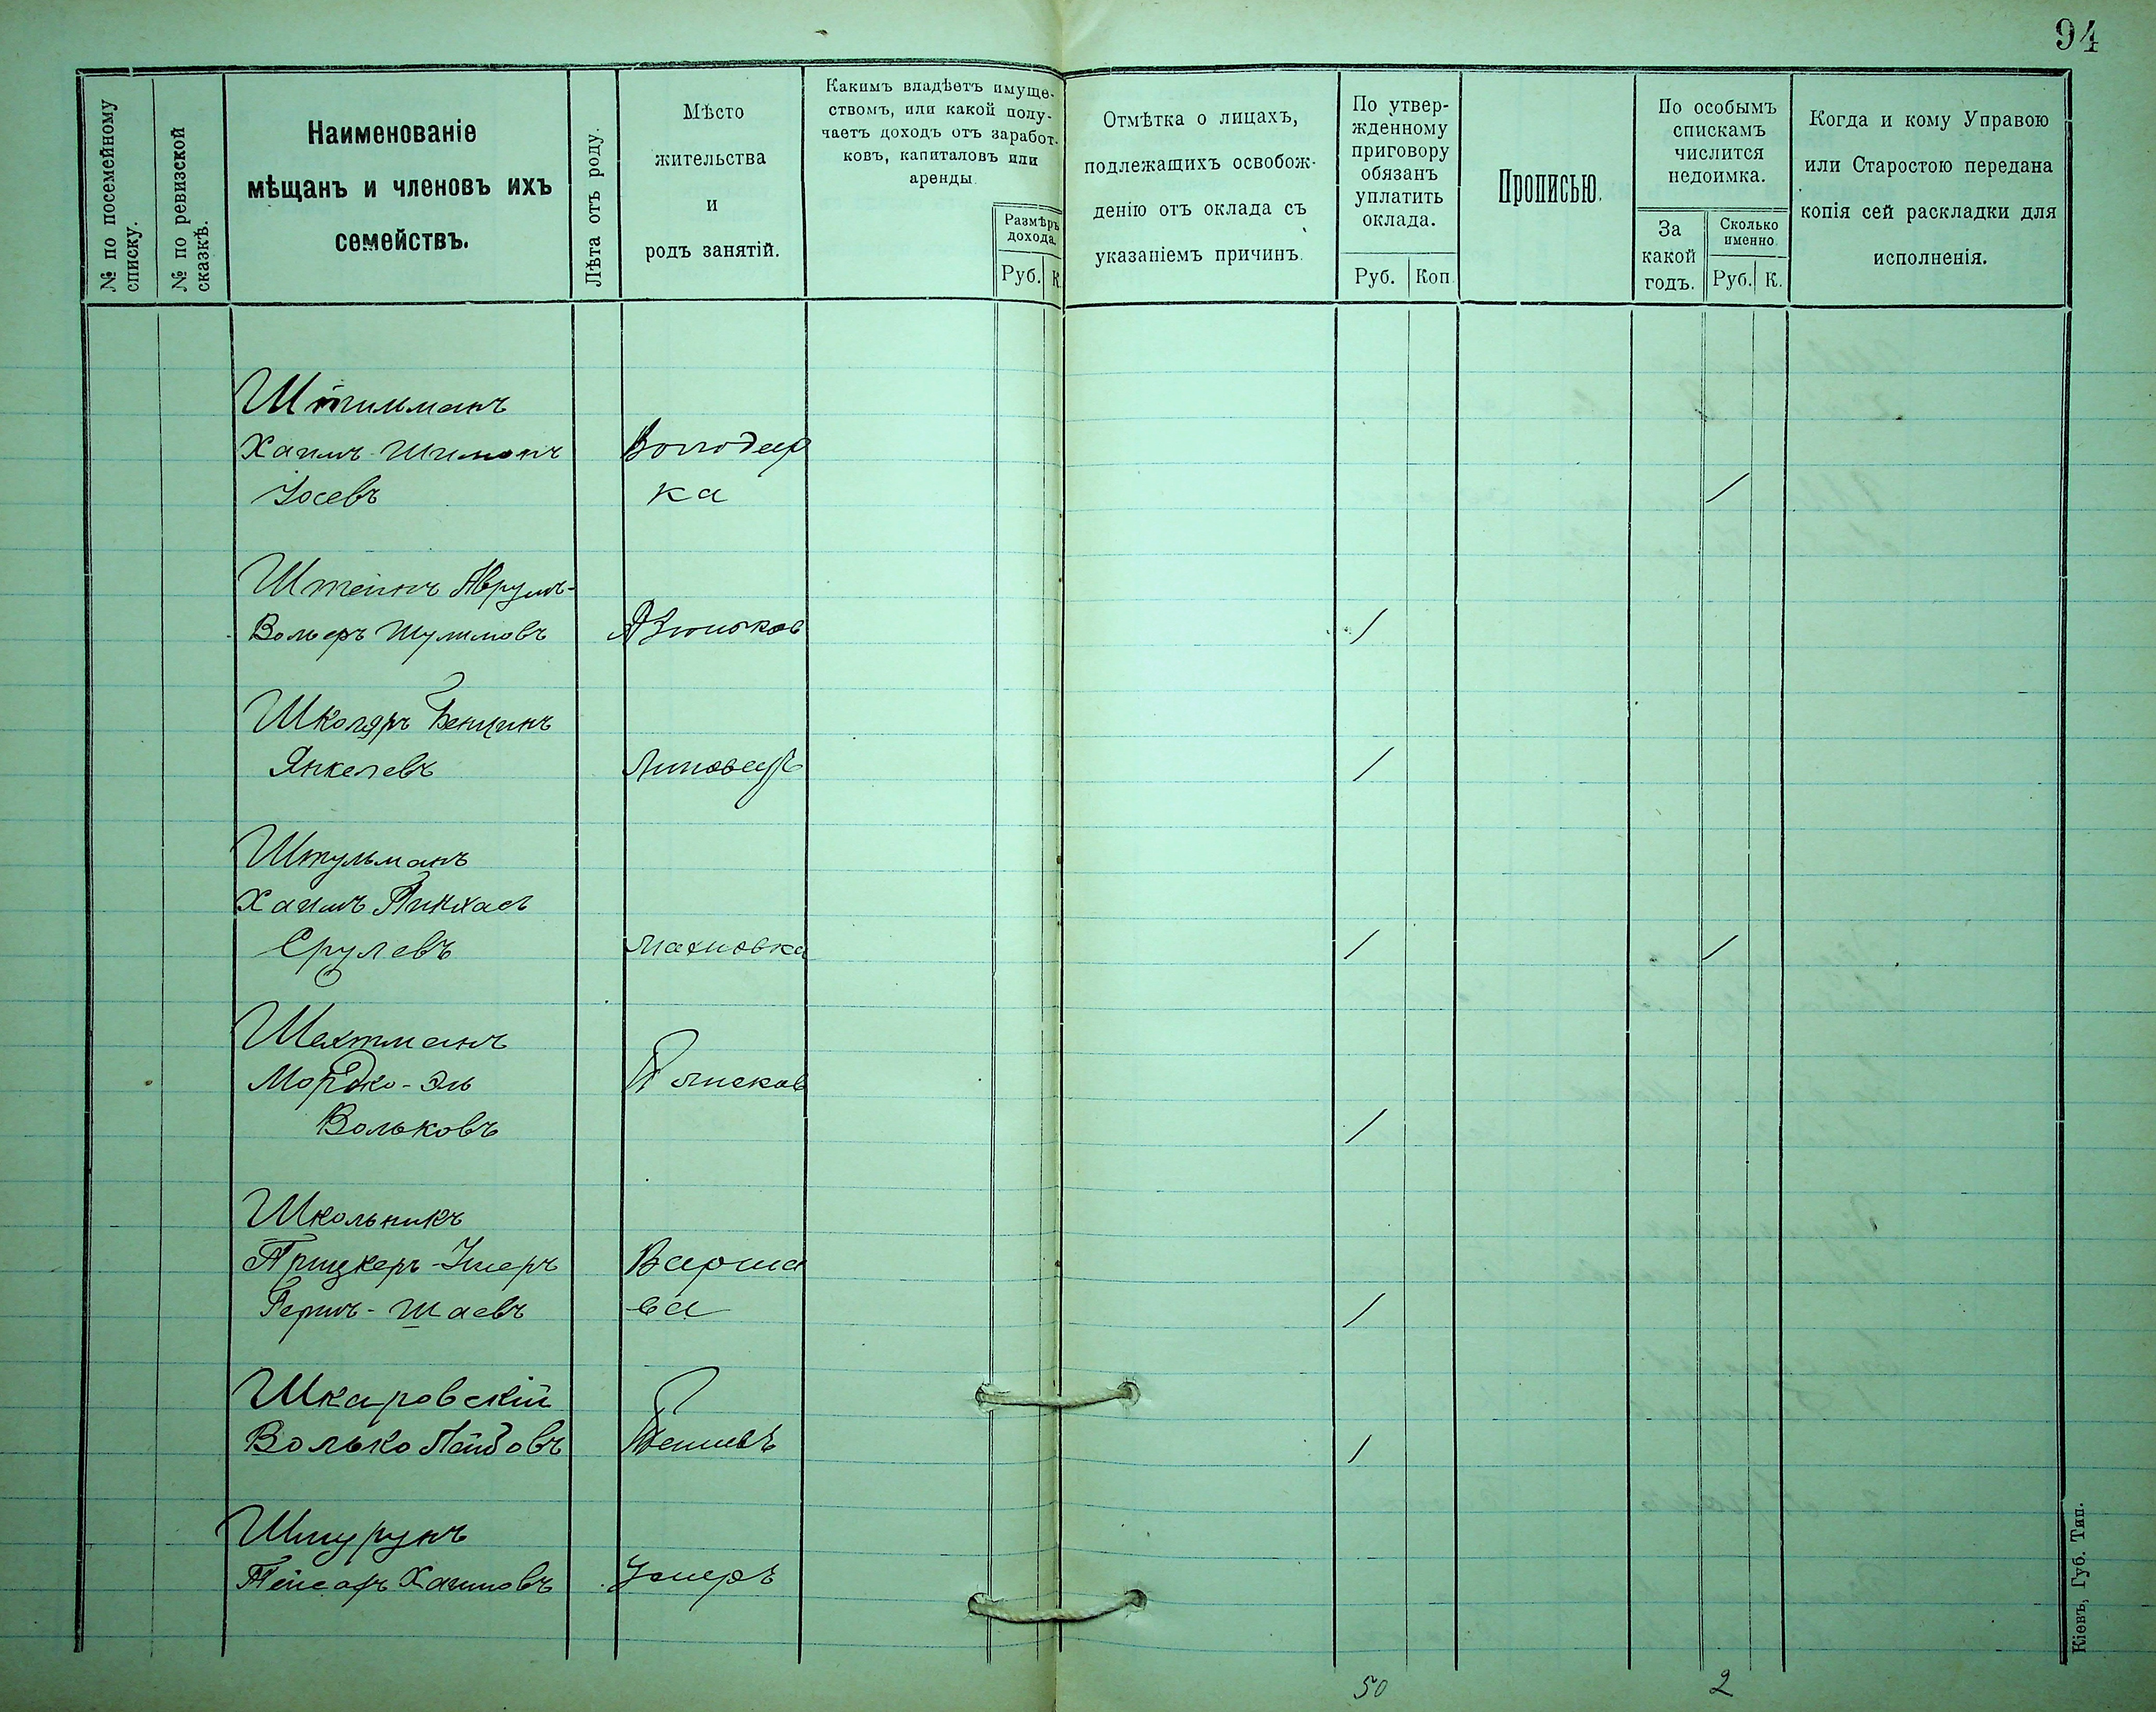 94
№ по посемейному списку.
№ по ревизской сказкѣ.
Наименованіе
мѣщанъ и членовъ ихъ
семействъ.
Лѣта отъ роду.
Мѣсто
жительства
и
родъ занятій.
Какимъ владѣетъ имуще-
ствомъ, или какой полу-
чаетъ доходъ отъ заработ-
ковъ, капиталовъ или
аренды.
Размѣръ
дохода.
Руб. К.
Отмѣтка о лицахъ,
подлежащихъ освобож-
денію отъ оклада съ
указаніемъ причинъ.
По утвер-
жденному
приговору
обязанъ
уплатить
оклада.
Руб. Коп.
Прописью.
По особымъ
спискамъ
числится
недоимка.
За
какой
годъ.
Сколько
именно
Руб. К.
Когда и кому Управою
или Старостою передана
копія сей раскладки для
исполненія.
Хаимъ-Шимонъ Володар
Іосевъ ка /
Штейнъ Аврумъ-
Вольфъ Шулимовъ /
Школяръ Бенціонъ
Янкелевъ Липовецъ /
Штульманъ
Хаимъ Пинхасъ
Срулевъ Махновка / /
Шахтманъ
Мордко-Эль Плисков
Вольковъ /
Школьникъ
Варша
Гершъ-Шаевъ ва /
Шкаровскій
Волько Лейбовъ /
Хаимовъ
50 2
Кіевъ, Губ. Тип.